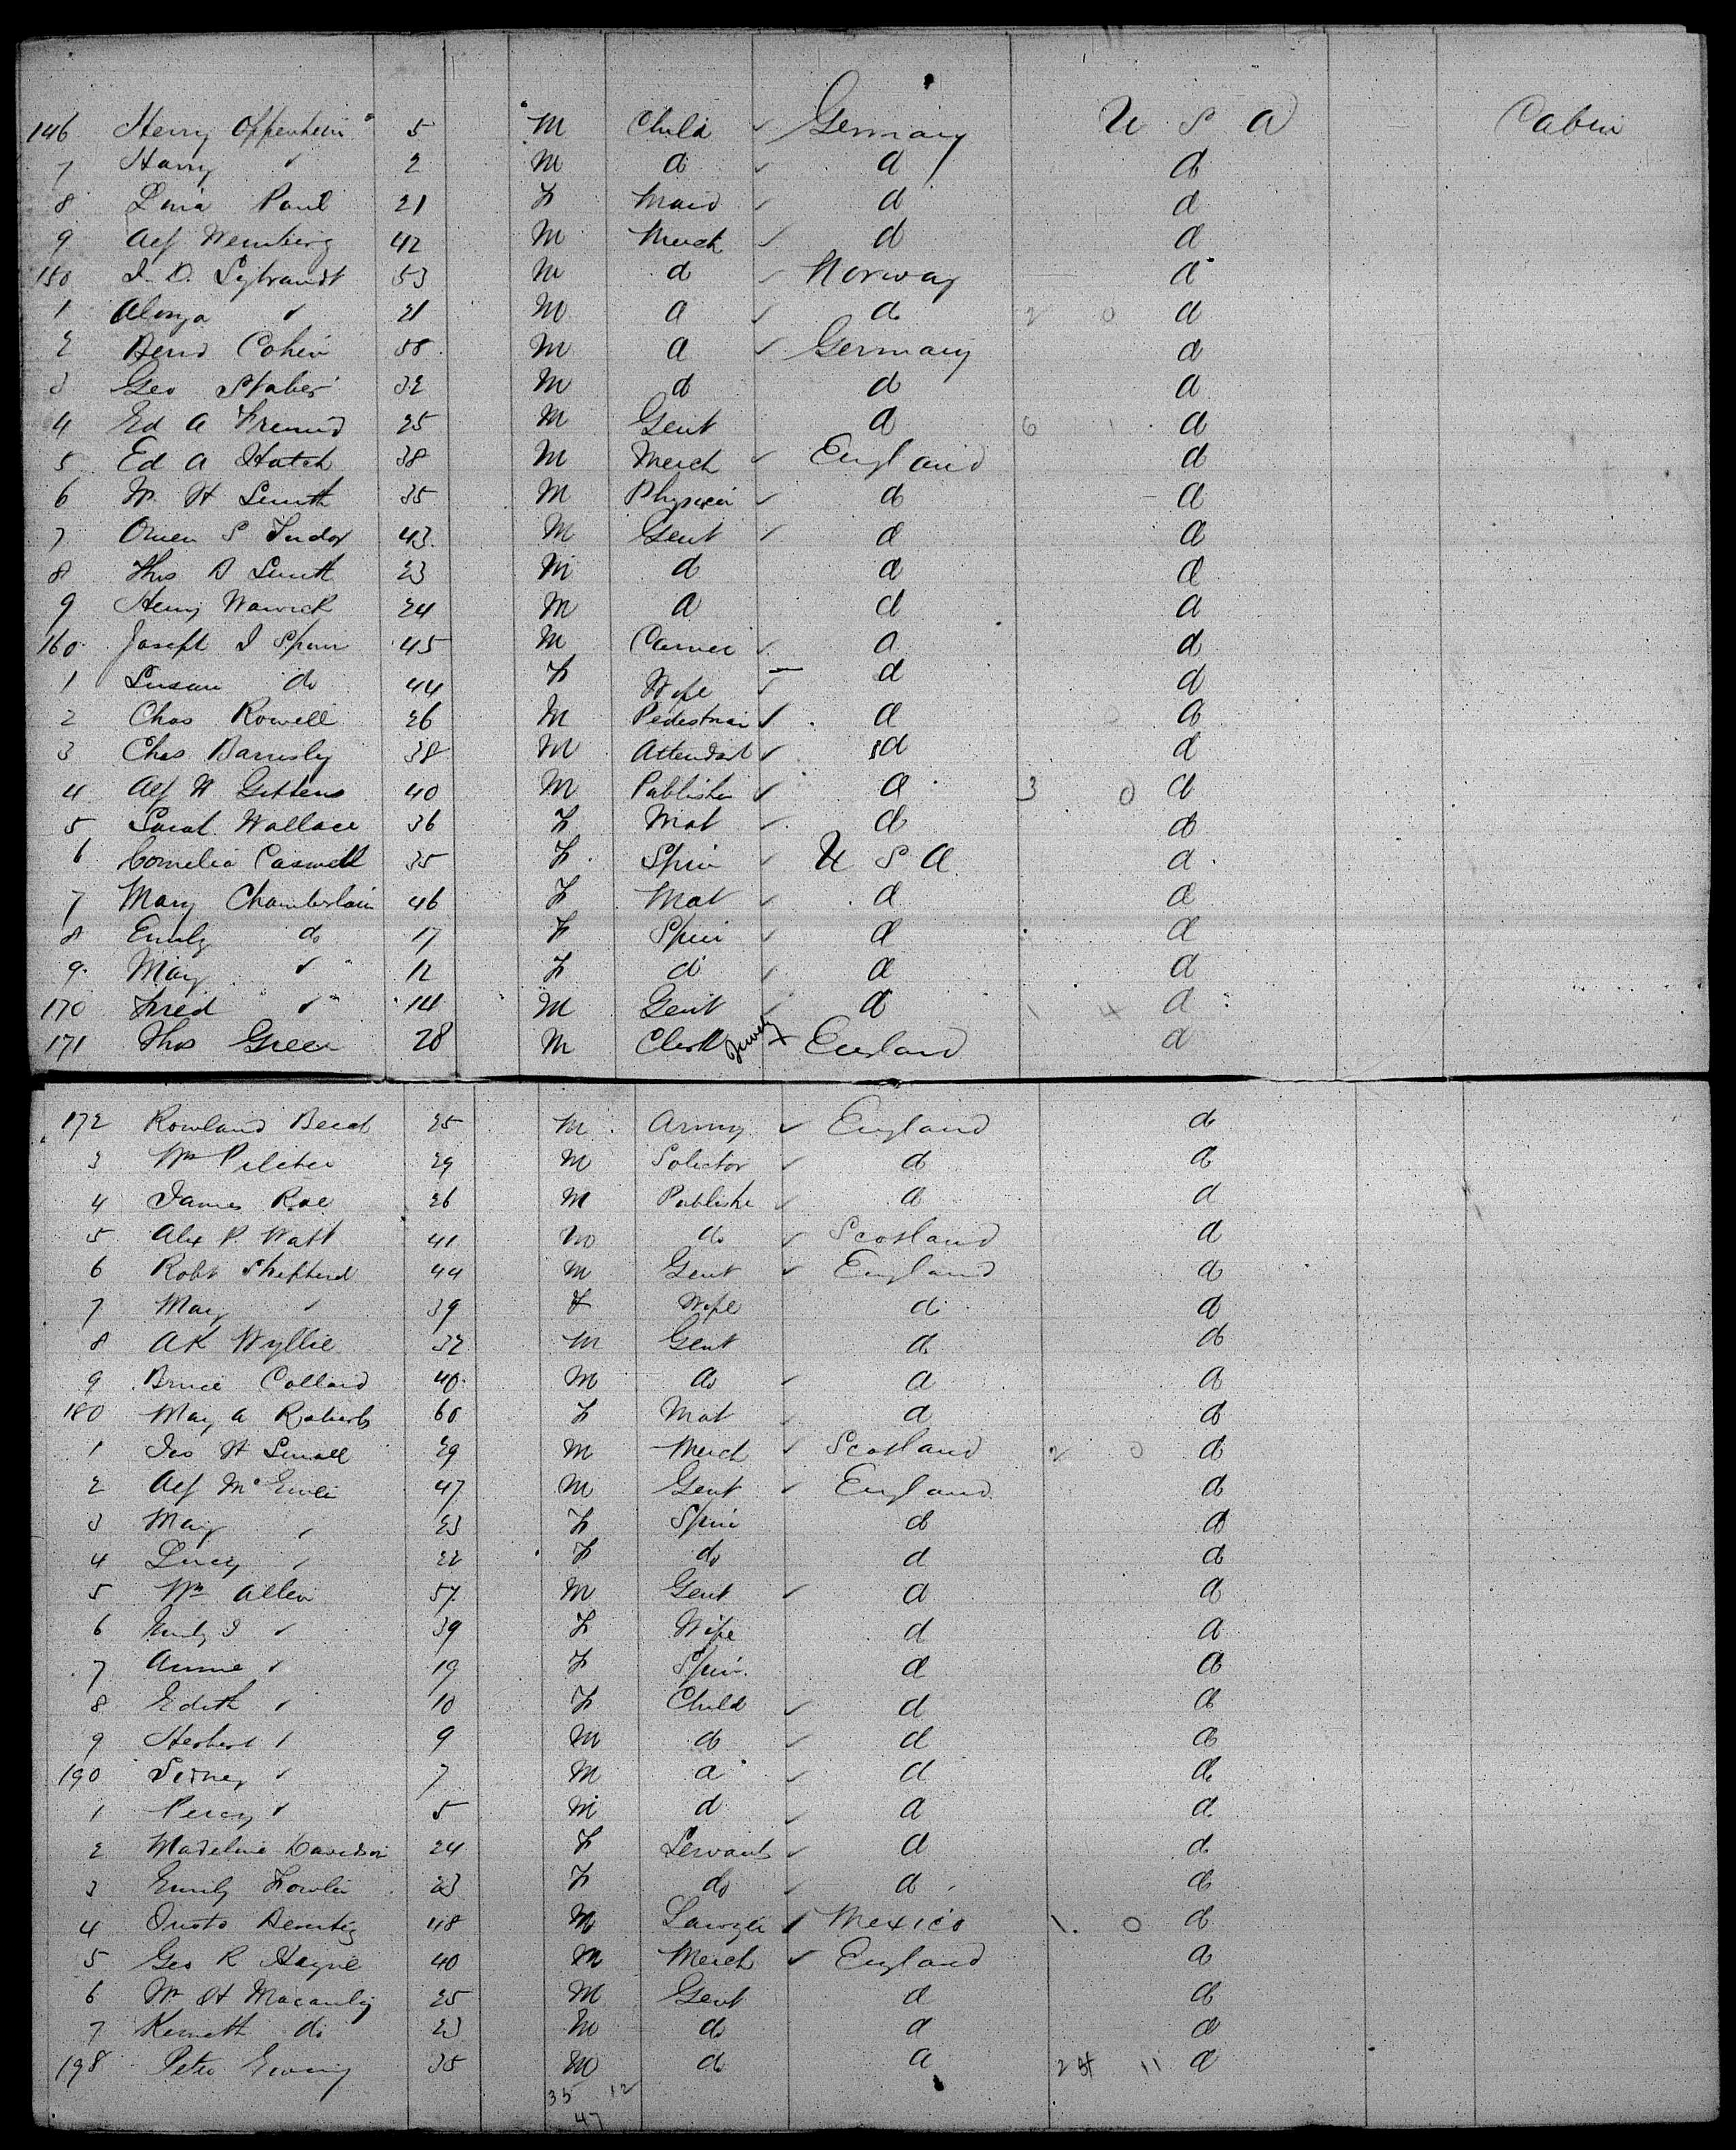 146 Henry Oppenheim 5 M Child ✓ Germany U S A Cabin
7 Harry " 2 M do ✓ do do
8 Lina Paul 21 F Maid ✓ do do
9 Alf Wemberg 42 M Merch ✓ do do
150 I. D. Sybrandt 53 M do ✓ Norway do
1 Alonzo " 21 M do ✓ do 2 0 do
2 Bend Cohen 58 M do ✓ Germany do
3 Geo Staber 32 M do do do
4 Ed A Freund 25 M Gent do 6 1 do
5 Ed A Hatch 38 M Merch ✓ England do
6 W H Smith 35 M Physician ✓ do do
7 Owen S Tudor 43 M Gent ✓ do do
8 Thos B Smith 23 M do do do
9 Henry Warwick 24 M do do do
160 Joseph I Spurr 45 M ✓ do do
1 Susan do 44 F Wife ✓ do do
2 Chas Rowell 26 M Pedestrian ✓ do 0 do
3 Chas Barnsley 38 M Attendant ✓ do do
4 Alf H Gittens 40 M Publisher ✓ do 3 0 do
5 Sarah Wallace 36 F Mat ✓ do do
6 Cornelia Caswell 35 F Spin ✓ U S A do
7 Mary Chamberlain 46 F Mat ✓ do do
8 Emily do 17 F Spin ✓ do do
9 May " 12 F do ✓ do do
170 Fred " 14 M Gent ✓ do 1 4 do
171 Thos Green 28 M Clerk x England do
172 Rowland Beech 25 M Army ✓ England do
3 Wm Pilcher 29 M Solictor ✓ do do
4 James Roe 26 M Publishe ✓ do do
5 Alex P. Watt 41 M do ✓ Scotland do
6 Robt Shepherd 44 M Gent ✓ England do
7 Mary " 39 F Wife do do
8 A K Wyllie 32 M Gent do do
9 Bruce Collard 40 M do ✓ do do
180 May A Roberts 60 F Mat ✓ do do
1 Jas H Small 29 M Merch ✓ Scotland 2 0 do
2 Alf McEwen 47 M Gent ✓ England do
3 May " 23 F Spin do do
4 Lucy " 22 F do do do
5 Wm Allen 57 M Gent ✓ do do
6 Emily J " 39 F Wife do do
7 Annie " 19 F Spin do do
8 Edith " 10 F Child ✓ do do
9 Herbert " 9 M do ✓ do do
190 Sidney " 7 M do ✓ do do
1 Percy " 5 M do ✓ do do
2 Madeline Davidson 24 F Servants ✓ do do
3 Emily Fowler 23 F do ✓ do do
4 Justo Benitez 48 M Lawyer ✓ Mexico 1 0 do
5 Geo R Hayne 40 M Merch ✓ England do
6 Wm H Macaulay 25 M Gent do do
7 Kenneth do 23 M do do do
198 Peter Ewing 35 M do do 24 11 do
35 12
47